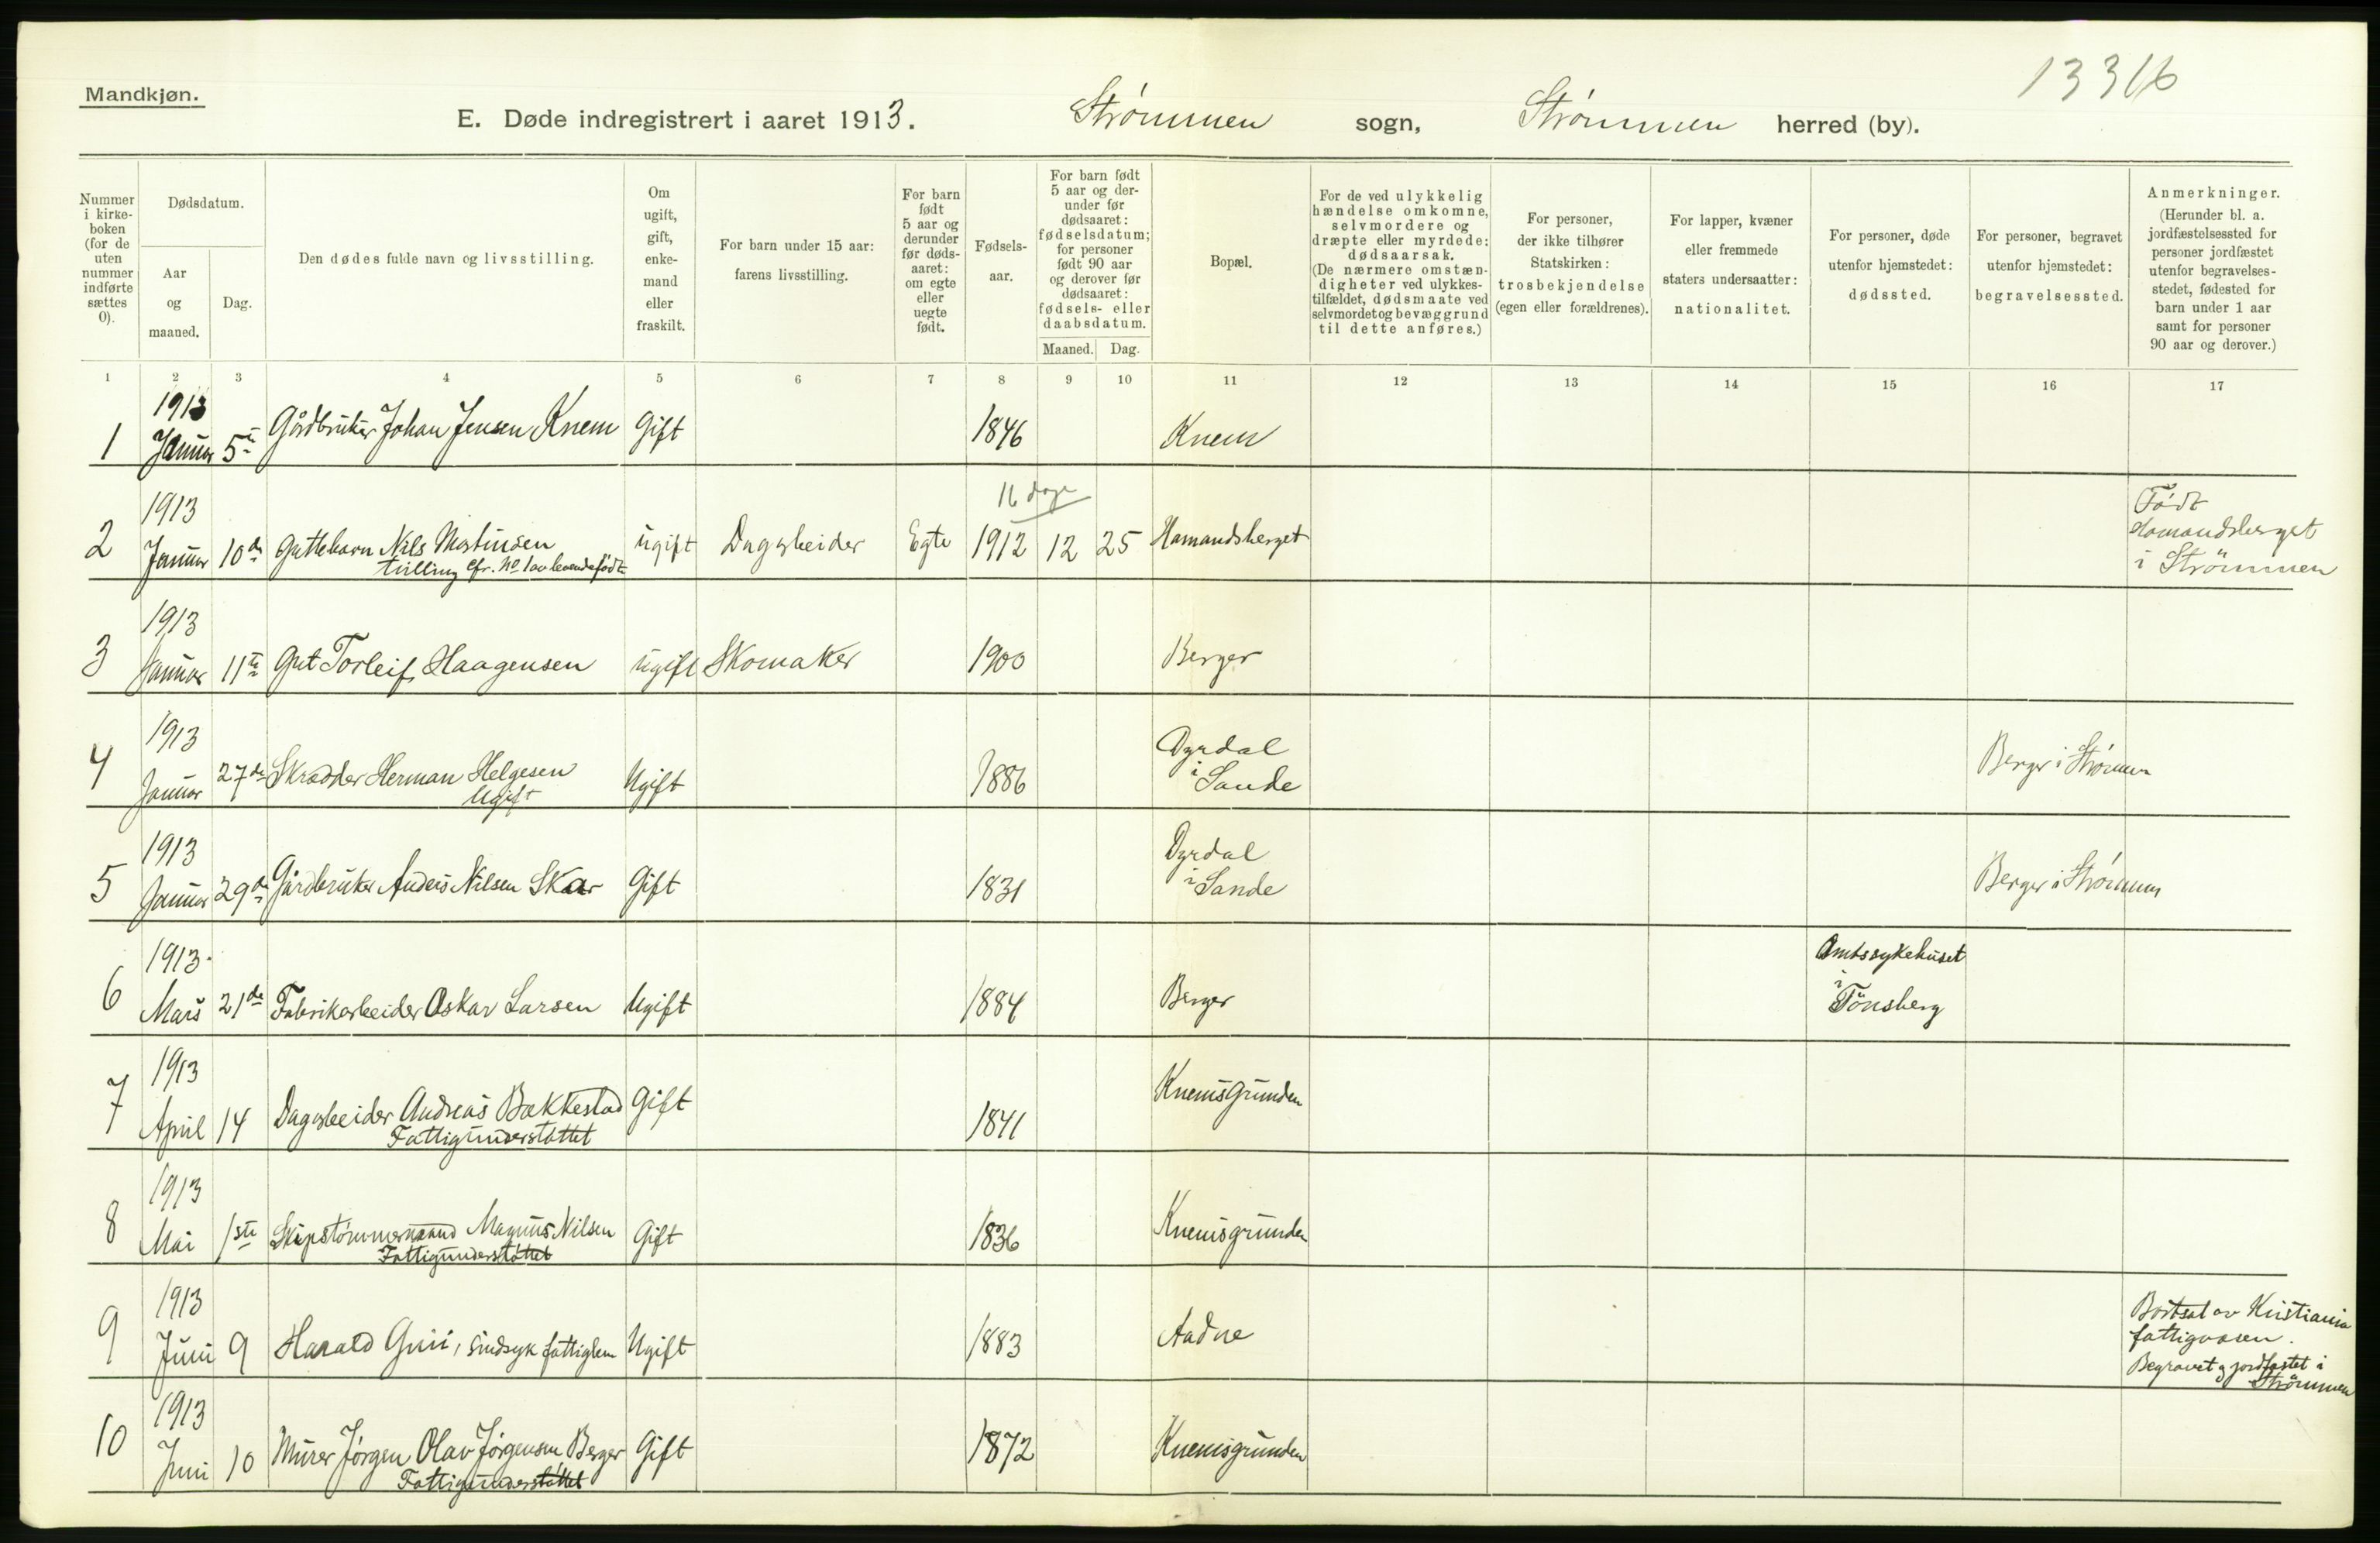 13316
Mandkjøn.
E. Døde indregistrert i aaret 1913. Strømmen sogn, Strømmen herred (by).
Nummer i kirke-boken (for de uten nummer indførte sættes 0).
Dødsdatum.
Aar og maaned.
Dag.
Den dødes fulde navn og livsstilling.
Om ugift, gift, enke-mand eller fraskilt.
For barn under 15 aar: farens livsstilling.
For barn født 5 aar og derunder før døds-aaret: om egte eller uegte født.
Fødsels-aar.
For barn født 5 aar og der-under før dødsaaret: fødselsdatum; for personer født 90 aar og derover før dødsaaret: fødsels- eller daabsdatum.
Maaned. Dag.
Bopæl.
For de ved ulykkelig hændelse omkomne, selvmordere og dræpte eller myrdede: dødsaarsak. (De nærmere omstæn-digheter ved ulykkes-tilfældet, dødsmaate ved selvmordet og bevæggrund til dette anføres.)
For personer, der ikke tilhører Statskirken: trosbekjendelse (egen eller forældrenes).
For lapper, kvæner eller fremmede staters undersaatter: nationalitet.
For personer, døde utenfor hjemstedet: dødssted.
For personer, begravet utenfor hjemstedet: begravelsessted.
Anmerkninger. (Herunder bl. a. jordfæstelsessted for personer jordfæstet utenfor begravelses-stedet, fødested for barn under 1 aar samt for personer 90 aar og derover.)
1 2 3 4 5 6 7 8 9 10 11 12 13 14 15 16 17
1 1913 Januar 5te Gårdbruker Johan Jensen Knem Gift 1846 Knem
16 dage
2 1913 Januar 10de Guttebarn Nils Martinsen ugift Dagarbeider Egte 1912 12 25 Hamandsberget Født Hamandsberget i Strömmen
tvilling cfr. No 1 av levendefødte
3 1913 Januar 11te Gut Torleif Haagensen ugift Skomaker 1900 Berger
4 1913 Januar 27de Skrædder Herman Helgesen Ugift 1886 Dyrdal i Sande Berger i Strømmen
Ugift
5 1913 Januar 29de Gårdbruker Anders Nilsen Skar Gift 1831 Dyrdal i Sande Berger i Strømmen
6 1913 Mars 21de Fabrikarbeider Oskar Larsen Ugift 1884 Berger Amtssykehuset i Tönsberg
7 1913 April 14 Dagarbeider Andreas Bakkestad Gift 1841 Knemsgrunden
Fattigunderstøttet
8 1913 Mai 1ste Skipstømmermand Magnus Nilsen Gift 1836 Knemsgrunden
Fattigunderstøttet
9 1913 Juni 9 Harald , sindsyk fattiglem Ugift 1883 Aadne Bortsat av Kristiania fattigvæsen. Begravet og jordfæstet i Strömmen
10 1913 Juni 10 Murer Jørgen Olav Jørgensen Berger Gift 1872 Knemsgrunden
Fattigunderstøttet